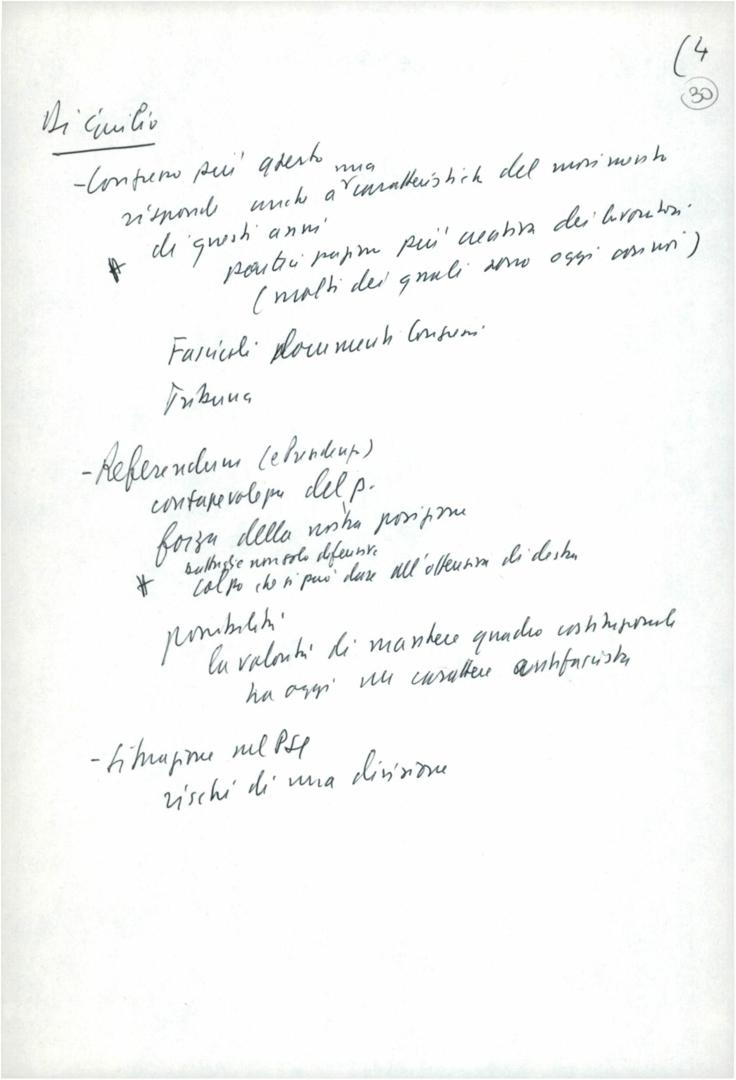 (4
30
Di Giulio
- Congresso più aperto
risponde anche a una caratteristica del movimento
di questi anni
* partecipazione più creativa dei lavoratori
(molti dei quali sono oggi comunisti)
Fascicoli documenti Congressi
Tribuna
- Referendum (e Pendenze)
consapevolezza del p.
forza della nostra posizione
battaglie non solo difensive
* colpo che si può dare all'offensiva di destra
possibilità
la volontà di mantere quadro costituzionale
ha oggi un carattere antifascista
- Situazione nel PSI
rischi di una divisione